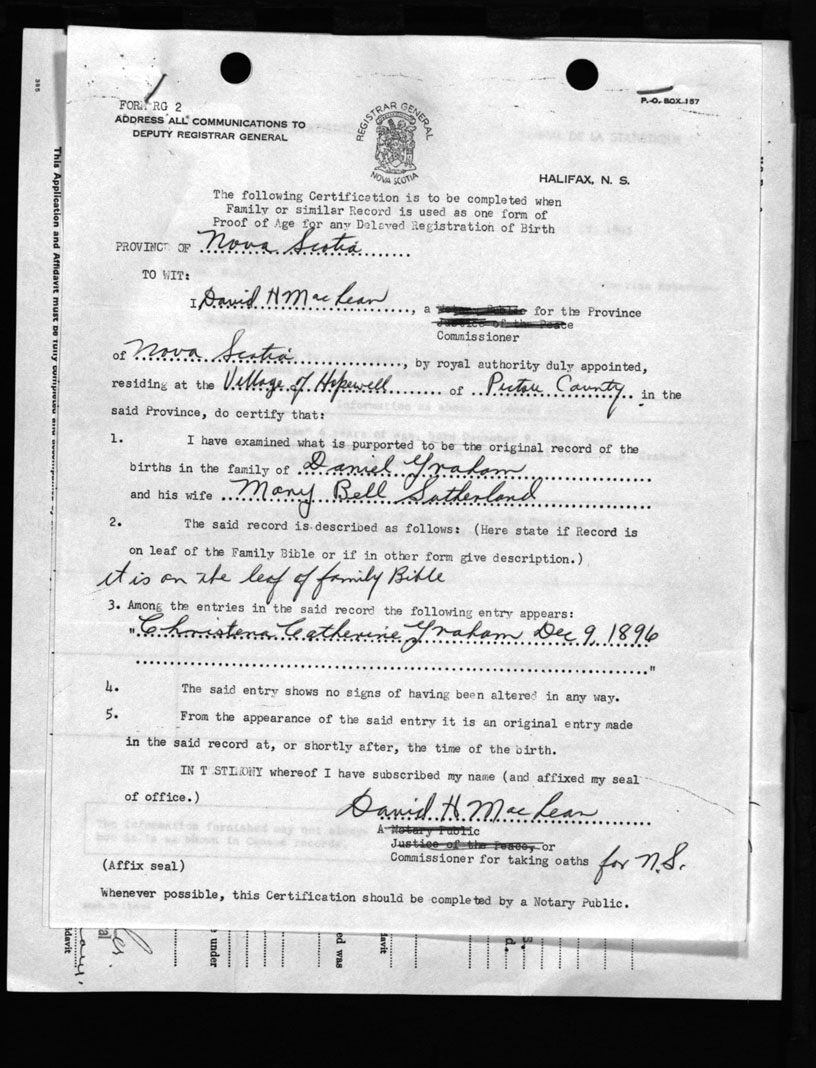 FORM RG 2
ADDRESS ALL COMMUNICATIONS TO
DEPUTY REGISTRAR GENERAL
REGISTRAR GENERAL
NOVA SCOTIA
P. O. BOX 157
HALIFAX, N. S.
The following Certification is to be completed when
Family or similar Record is used as one form of
Proof of Age for any Delayed Registration of Birth
PROVINCE OF Nova Scotia
TO WIT:
I, David H MacLean, a Notary Public for the Province
Justice of the Peace
Commissioner
of Nova Scotia, by royal authority duly appointed,
residing at the Village of Hopewell of Pictou County in the
said Province, do certify that:
1. I have examined what is purported to be the original record of the
births in the family of Daniel Graham
and his wife Mary Bell Sutherland
2. The said record is described as follows: (Here state if Record is
on leaf of the Family Bible or if in other form give description.)
it is on the leaf of family Bible
3. Among the entries in the said record the following entry appears:
"Christena Catherine Graham Dec 9, 1896
"
4. The said entry shows no signs of having been altered in any way.
5. From the appearance of the said entry it is an original entry made
in the said record at, or shortly after, the time of the birth.
IN T STIMONY whereof I have subscribed my name (and affixed my seal
of office.)
David H MacLean
A Notary Public
Justice of the Peace, or
Commissioner for taking oaths for N.S.
(Affix seal)
Whenever possible, this Certification should be completed by a Notary Public.
This Application and Affidavit must be fully completed and
under
ed was
davit